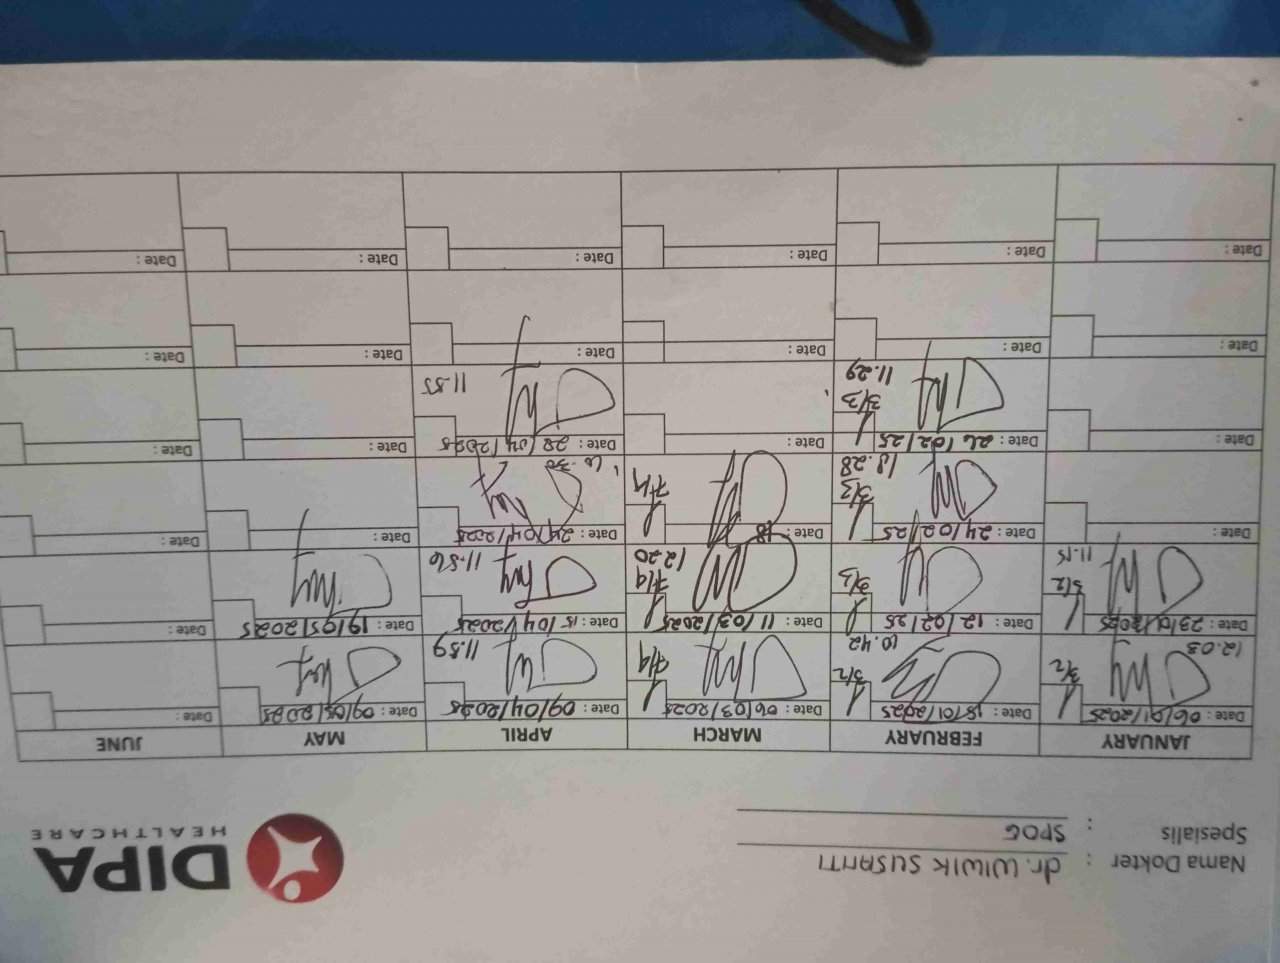 Nama Dokter : dr. WIWIK SUSANTI
Spesialis : SPOG
DIPA
HEALTHCARE
JANUARY FEBRUARY MARCH APRIL MAY JUNE
Date : 06/01/2025 Date : 15/01/2025 Date : 06/03/2025 Date : 09/04/2025 Date : 09/05/2025 Date :
12.03 3/2 3/2 10.42 7/4 11.59
Date : 23/01/2025 Date : 12/02/25 Date : 11/03/2025 Date : 15/04/2025 Date : 19/05/2025 Date :
3/2 11.15 3/3 7/4 12.20 11.56
Date : Date : 24/02/25 Date : 18 Date : 24/04/2025 Date : Date :
3/3 18.28 7/4 10.30
Date : Date : 26/02/25 Date : Date : 28/04/2025 Date : Date :
3/3 11.29 11.55
Date : Date : Date : Date : Date : Date :
Date : Date : Date : Date : Date : Date :